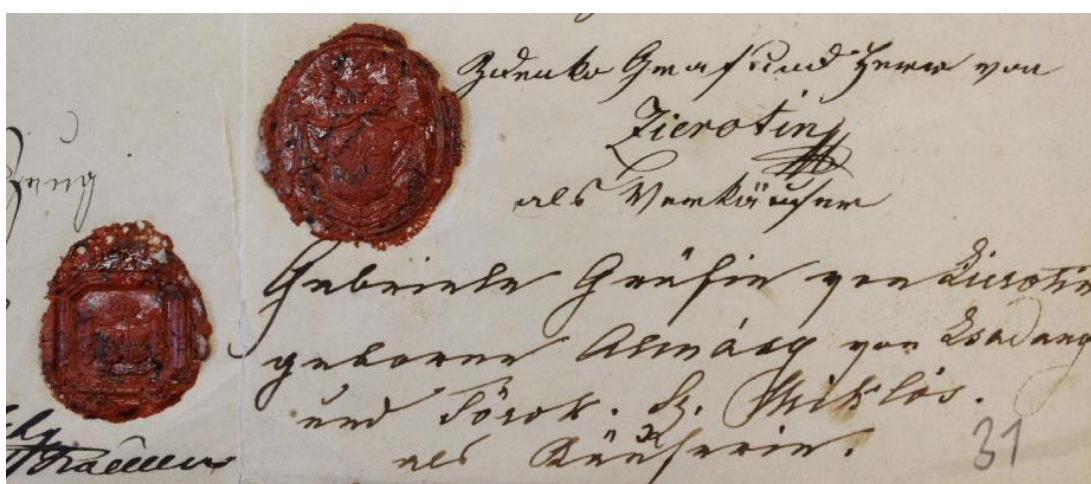 Zdenko Graf und Herr von
Zierotin
als Verkäufer
Zeug
Gabriele Gräfin von Zierotin
geborne Almásy von Zsadány
und Török. Sz. Miklós.
als Käuferin.
31